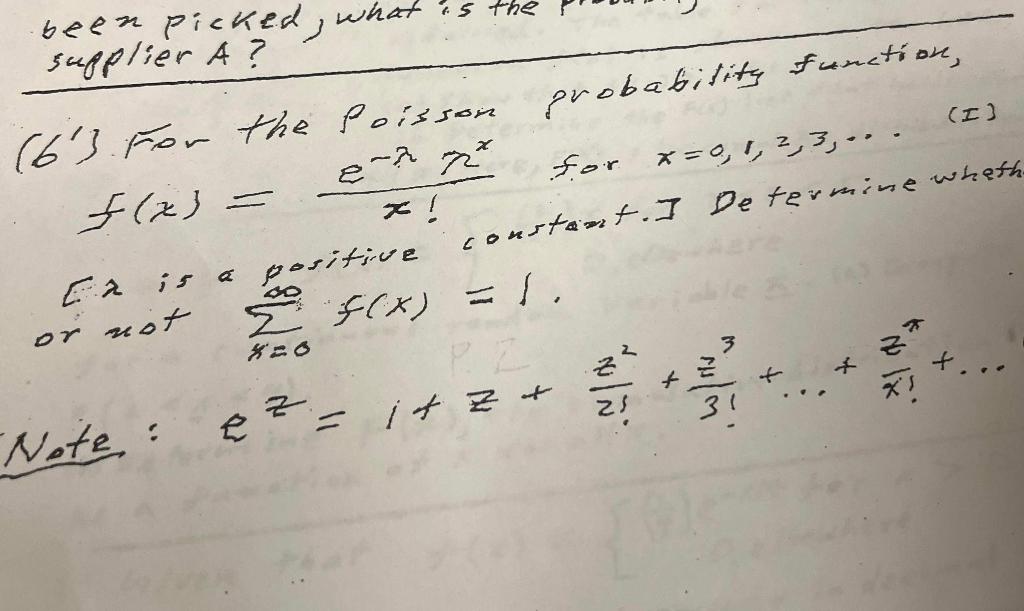 been picked, what is the
supplier A?
(6') For the Poisson probability function,
f(x) = e^-λ λ^x / x! for x=0, 1, 2, 3, ... (I)
[λ is a positive constant.] Determine wheth
or not ∑_{x=0}^{∞} f(x) = 1.
Note: e^z = 1 + z + z^2/2! + z^3/3! + ... + z^x/x! + ...